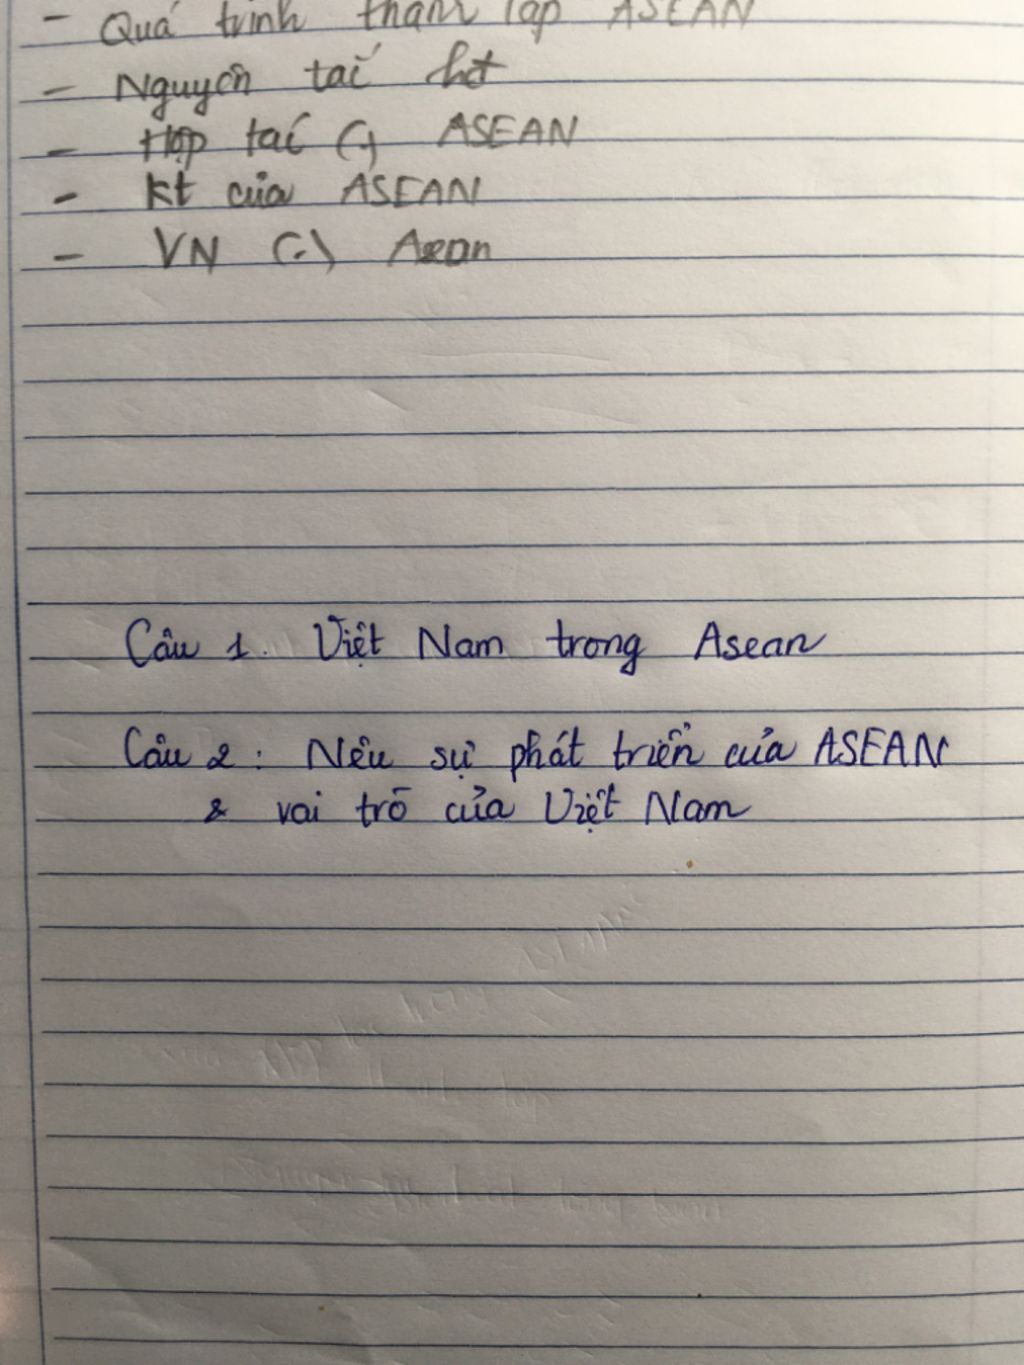 - Quá trình thành lập ASEAN
- Nguyên tắc hđ
- Hợp tác (-) ASEAN
- kt của ASEAN
- VN (-) Asean
Câu 1. Việt Nam trong Asean
Câu 2: Nêu sự phát triển của ASEAN
& vai trò của Việt Nam